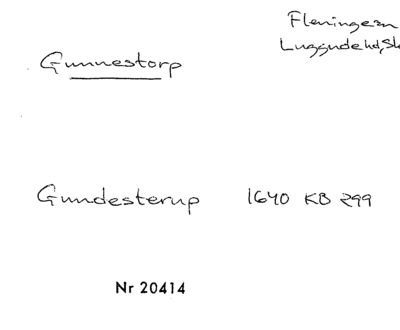 Fleninge sn
Luggude hd, Sk
Gunnestorp
Gundesterup 1640 KB 299
Nr 20414